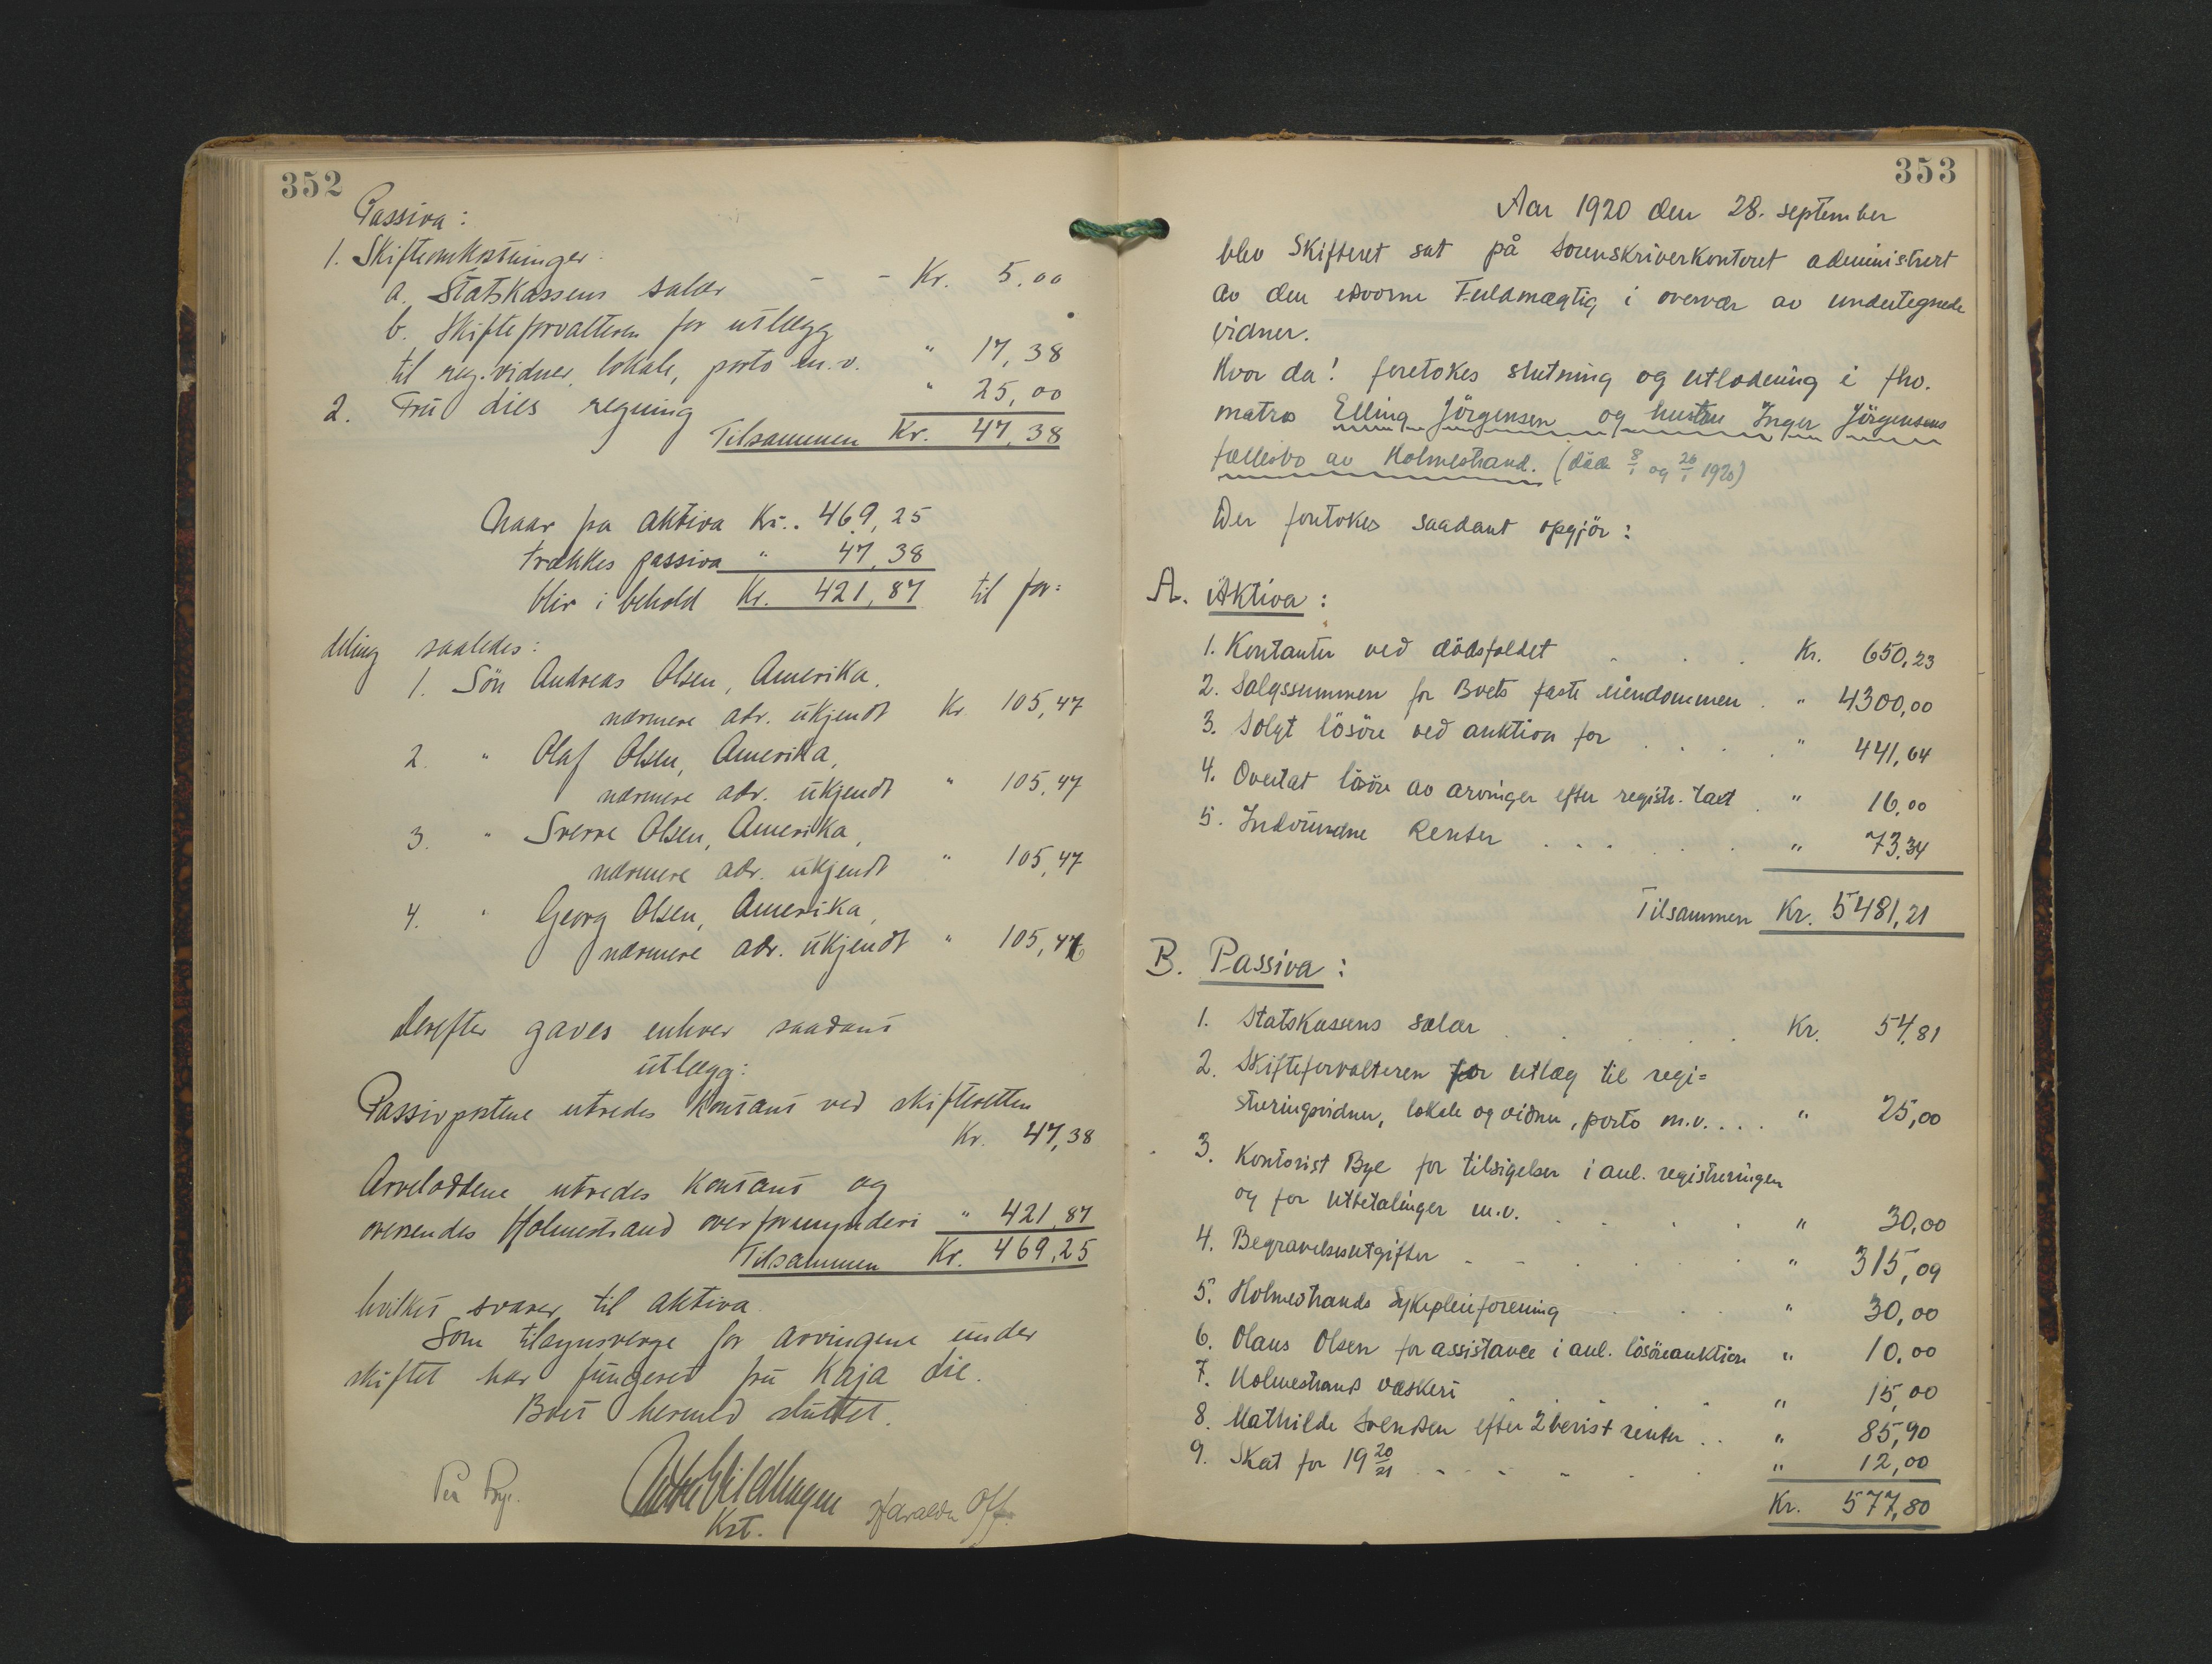 352
Passiva:
1. Skifteomkostninger:
a. Statskassens salær - - Kr. 5,00
b. Skifteforvalteren for utlægg
til reg.vidner, lokale, porto m.v. " 17,38
2. Fru Dies regning " 25,00
Tilsammen Kr. 47,38
Naar fra aktiva Kr. 469,25
trækkes passiva " 47,38
blir i behold Kr. 421,87 til for=
deling saaledes:
1. Sön Andreas Olsen, Amerika,
nærmere adr. ukjendt Kr. 105,47
2. " Olaf Olsen, Amerika,
nærmere adr. ukjendt " 105,47
3. " Sverre Olsen, Amerika,
nærmere adr. ukjendt " 105,47
4. " Georg Olsen, Amerika,
nærmere adr. ukjendt " 105,46
Derefter gaves enhver saadant
utlægg:
Passivpostene utredes kontant ved skifteretten
Kr. 47,38
Arveloddene utredes kontant og
oversendes Holmestrand overformynderi " 421,87
Tilsammen Kr. 469,25
hvilket svarer til aktiva.
Som tilsynsverge for arvingene under
skiftet har fungeret fru Kaja Die.
Boet hermed sluttet.
Per Bye.
Kst.
353
Aar 1920 den 28. september
blev Skifteret sat på Sorenskriverkontoret administrert
av den edsvorne Fuldmægtig i overvær av undertegnede
vidner.
Hvor da! foretokes slutning og utlodning i fhv.
matros Elling Jörgensen og hustru Inger Jörgensens
fællesbo av Holmestrand. (död 8/1 og 26/1 1920)
Der foretokes saadant opgjör:
A. Aktiva:
1. Kontanter ved dödsfaldet . . . Kr. 650,23
2. Salgssummen for Boets faste eiendommen . " 4300,00
3. Solgt lösöre ved auktion for . . . . " 441,64
4. Overtat lösöre av arvinger efter registr. taxt . " 16,00
5. Indvundne Renter . . . . . " 73,34
Tilsammen Kr. 5481,21
B. Passiva:
1. Statskassens salær . . . . . Kr. 54,81
2. Skifteforvalteren for utlæg til regi=
streringsvidner, lokale og vidner, porto m.v. . . . " 25,00
3. Kontorist Bye for tilsigelser i anl. registreringen
og for utbetalinger m.v. . . . . " 30,00
4. Begravelsesutgifter - - . . . " 315,09
5. Holmestrands Sykepleieforening . . . " 30,00
6. Olaus Olsen for assistance i anl. lösöreauktion " 10,00
7. Holmestrand vaskeri . . . " 15,00
8. Mathilde Svendsen efter 2 bevist renter . . " 85,90
9. Skat for 19 20/21 . - - - . . " 12,00
Kr. 577,80